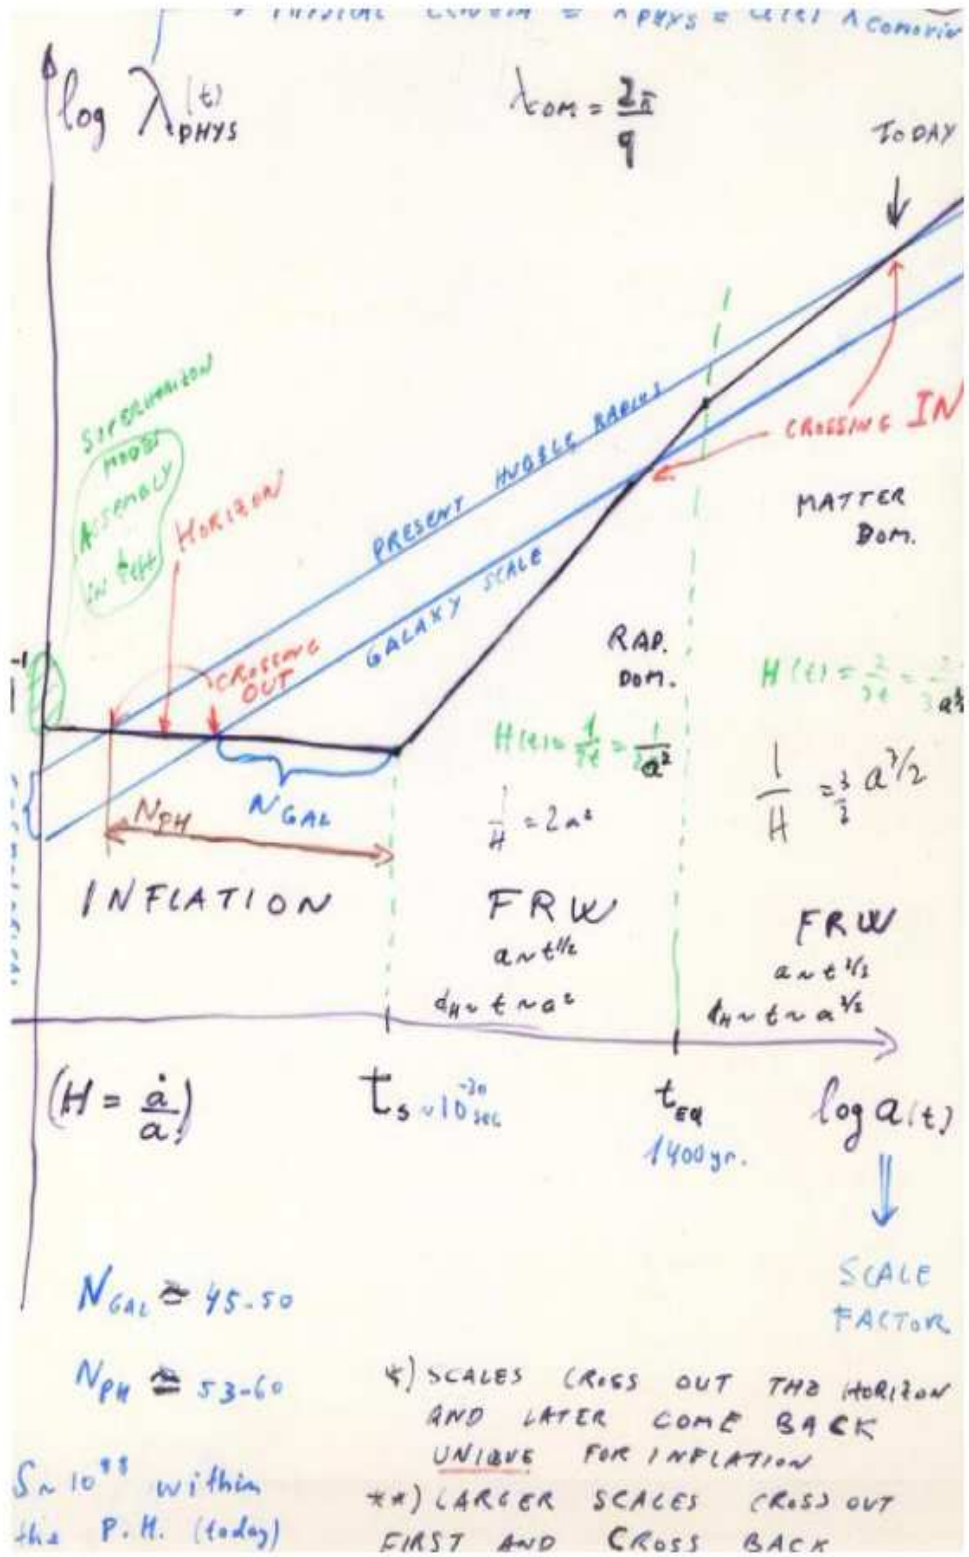 PHYSICAL LENGTH = λ PHYS = a(t) λ COMOVIN
log λ PHYS (t)
λ COM. = 2π / q
TODAY
SUPERHORIZON
MODES
ASSEMBLY
in left
HORIZON
PRESENT HUBBLE RADIUS
GALAXY SCALE
CROSSING IN
CROSSING
OUT
MATTER
DOM.
RAD.
DOM.
H(t) = 1/2t = 1/2a²
H(t) = 2/3t =
N PH
N GAL
1/H = 2a²
1/H = 3/2 a^3/2
INFLATION
FRW
a ~ t^1/2
d_H ~ t ~ a²
FRW
a ~ t^2/3
d_H ~ t ~ a^3/2
(H = ȧ/a)
t_S ~ 10^-30 sec
t_EQ
1400 yr.
log a(t)
SCALE
FACTOR
N GAL ≅ 45-50
N PH ≅ 53-60
S ~ 10^88 within
the P.H. (today)
*) SCALES CROSS OUT THE HORIZON
AND LATER COME BACK
UNIQUE FOR INFLATION
**) LARGER SCALES CROSS OUT
FIRST AND CROSS BACK